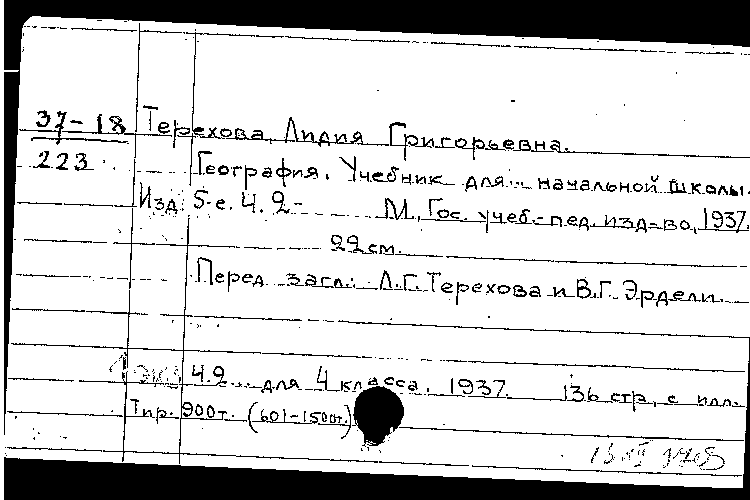 37-18 Терехова, Лидия Григорьевна.
223 География. Учебник для... начальной школы.
Изд. 5-е. Ч. 2- М., Гос. учеб.-пед. изд-во, 1937.
22 см.
Перед загл.: Л.Г. Терехова и В.Г. Эрдели.
1 экз Ч.2... для 4 класса. 1937. 136 стр., с илл.
Тир. 900т. (601-1500т.)